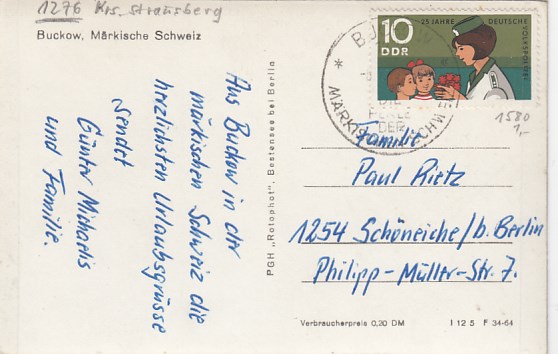 1276 Krs. Strausberg
Buckow, Märkische Schweiz
Aus Buckow in der
märkischen Schweiz die
herzlichsten Urlaubsgrüsse
sendet
Günter Michaelis
und Familie.
PGH „Rotophot", Bestensee bei Berlin
10
DDR
25 JAHRE DEUTSCHE
VOLKSPOLIZEI
DIE
PERLE
DER
1580
1,-
Familie
Paul Rietz
1254 Schöneiche/b. Berlin
Philipp-Müller-Str. 7.
Verbraucherpreis 0,20 DM
I 12 5 F 34-64